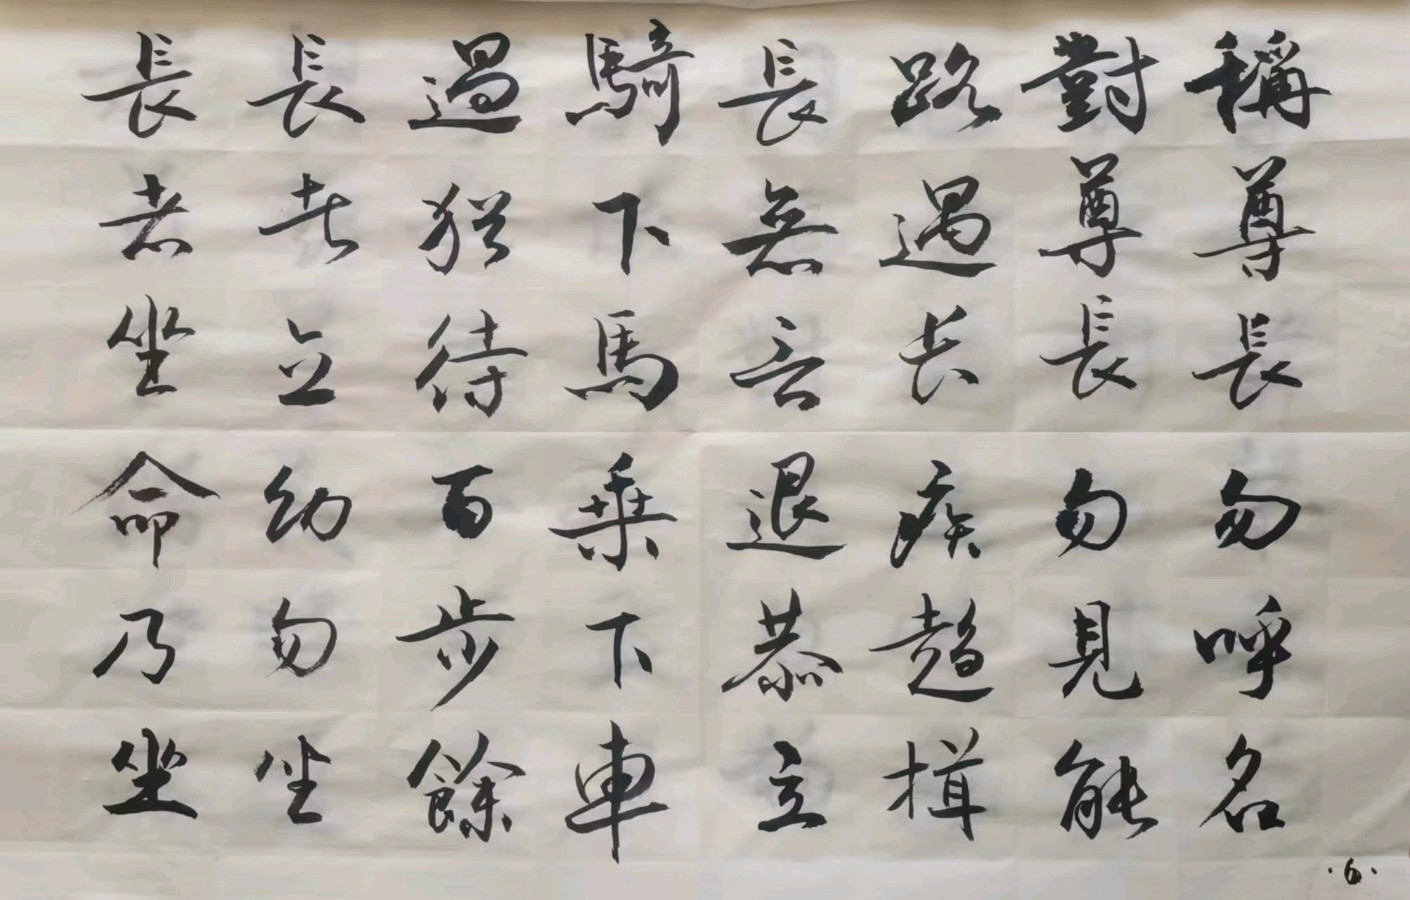 稱尊長勿呼名
對尊長勿見能
路遇长疾趨揖
長無言退恭立
騎下馬乗下車
過猶待百步餘
長者立幼勿坐
長者坐命乃坐
·6·